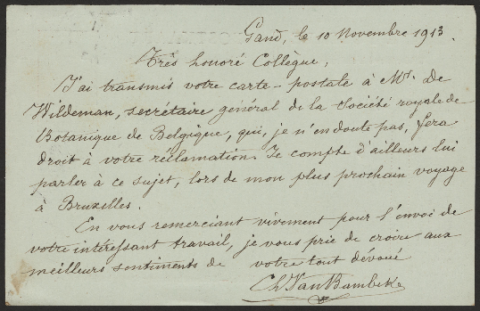 Gand, le 10 Novembre 1913.
Très honoré Collègue,
J'ai transmis votre carte-postale à Mr. De
Wildeman, secrétaire général de la Société royale de
Botanique de Belgique, qui, je n'en doute pas, fera
droit à votre réclamation. Je compte d'ailleurs lui
parler à ce sujet, lors de mon plus prochain voyage
à Bruxelles.
En vous remerciant vivement pour l'envoi de
votre intéressant travail, je vous prie de croire aux
meilleurs sentiments de votre tout dévoué
Ch Van Bambeke